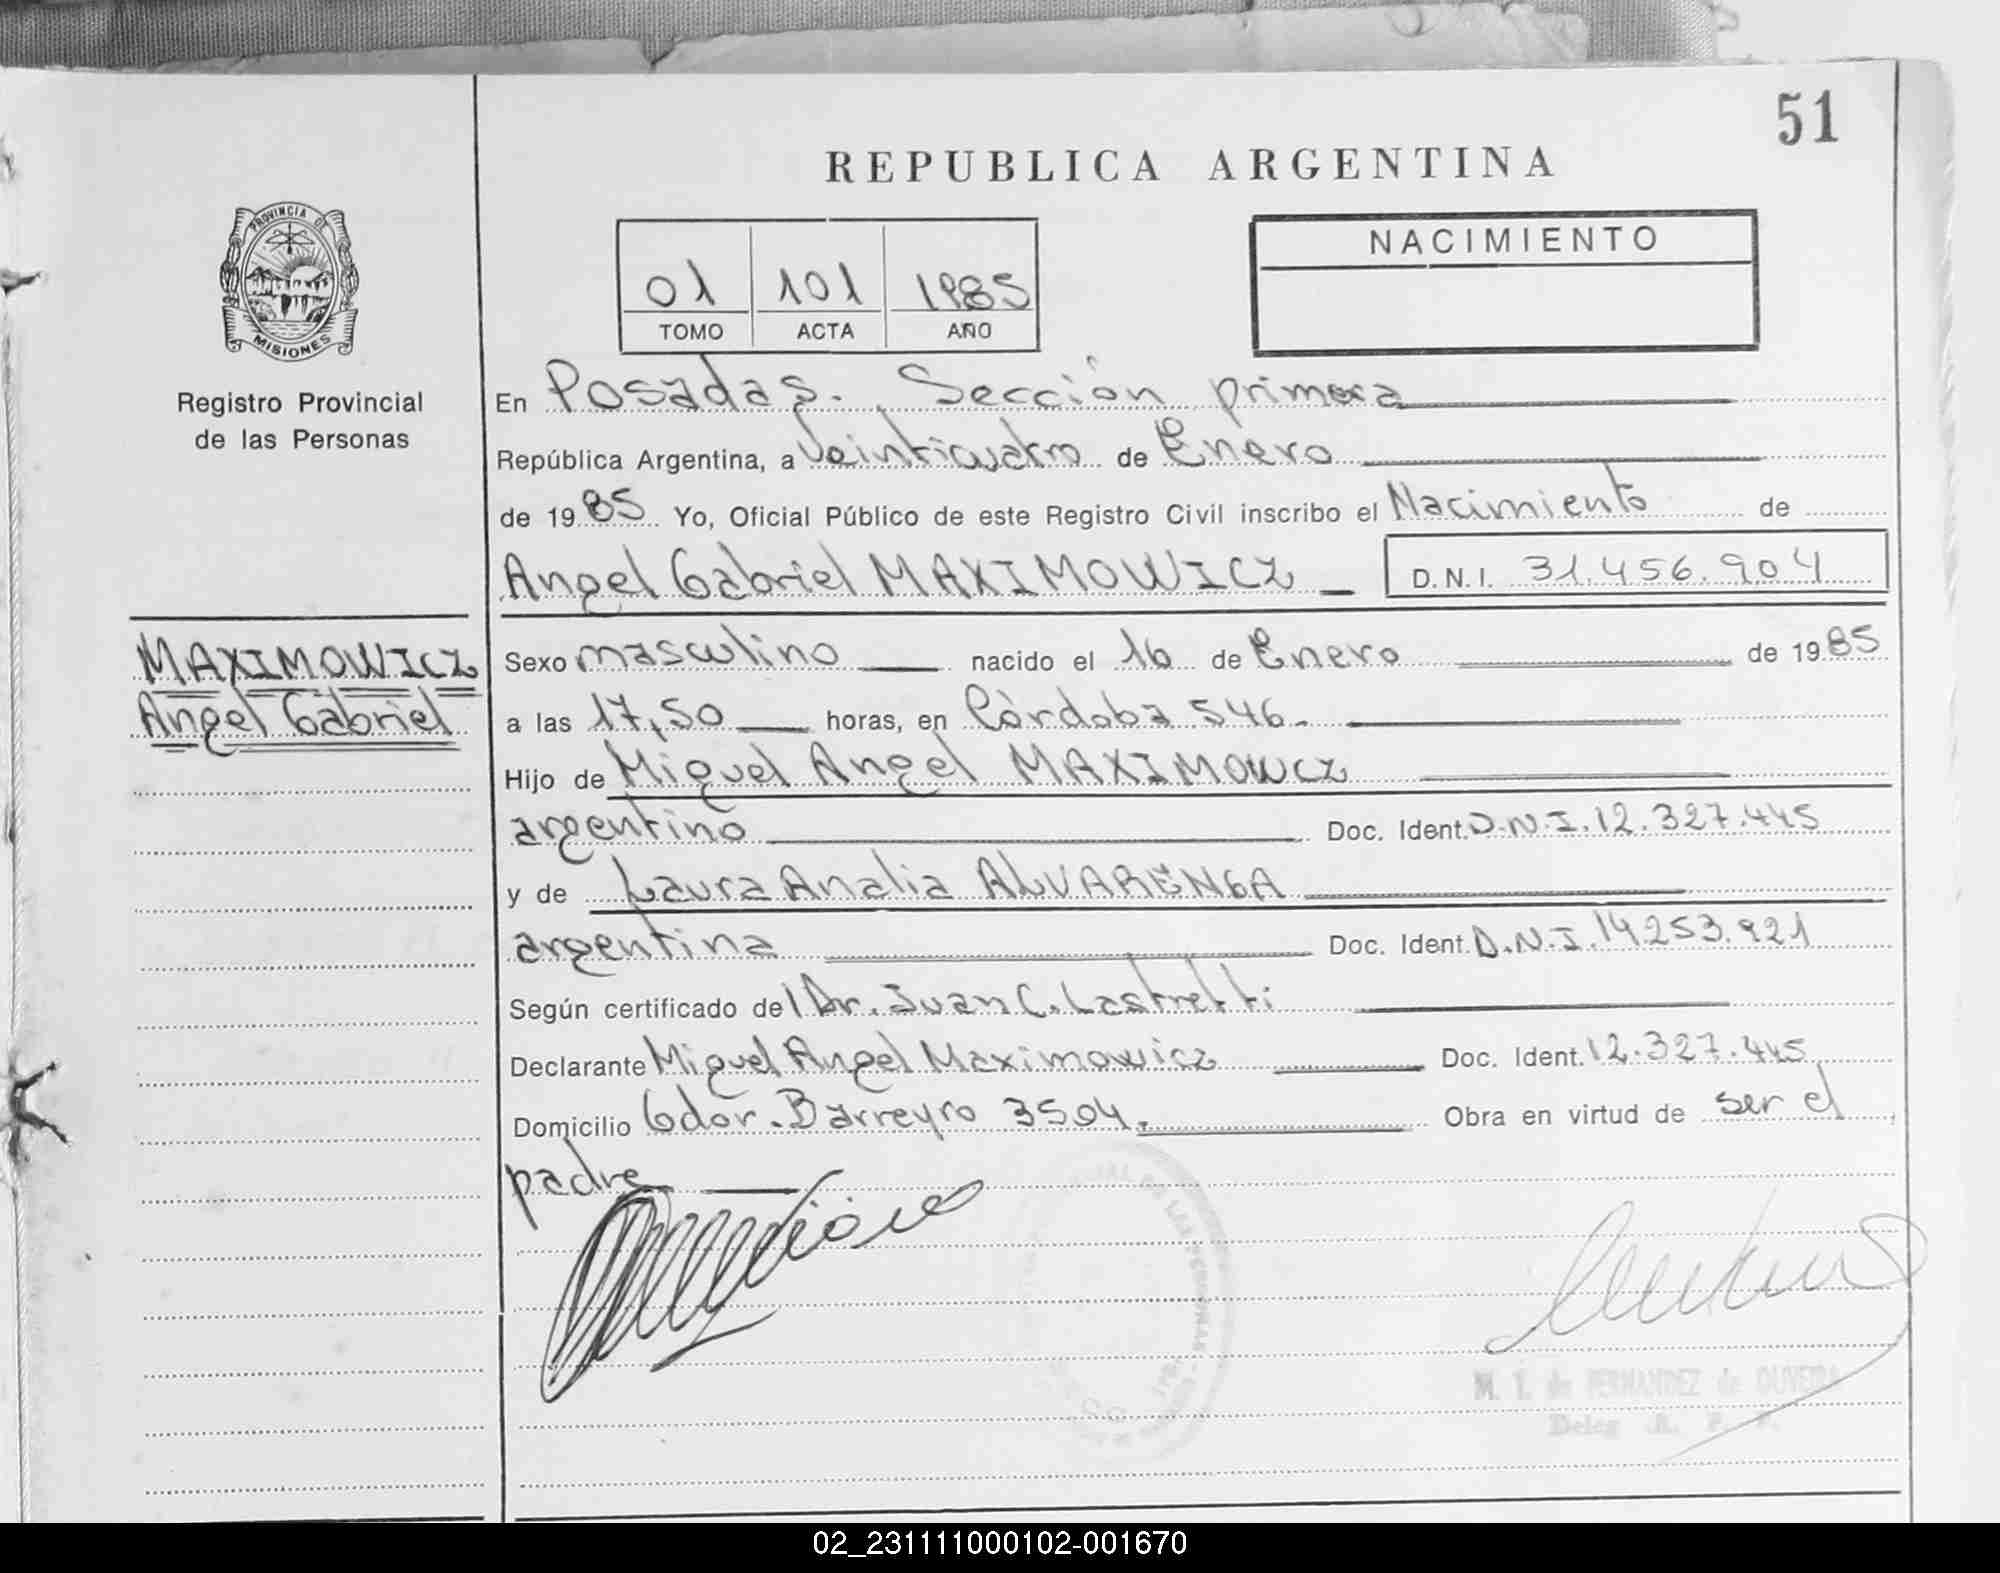 51
REPUBLICA ARGENTINA
PROVINCIA DE
MISIONES
Registro Provincial
de las Personas
01 101 1985
TOMO ACTA AÑO
NACIMIENTO
En Posadas. Sección primera
República Argentina, a Veinticuatro de Enero
de 1985 Yo, Oficial Público de este Registro Civil inscribo el Nacimiento de
Angel Gabriel MAXIMOWICZ D.N.I. 31.456.904
MAXIMOWICZ
Angel Gabriel
Sexo masculino nacido el 16 de Enero de 1985
a las 17,50 horas, en Córdoba 546.
Hijo de Miguel Angel MAXIMOWCZ
argentino Doc. Ident. D.N.I. 12.327.445
y de Laura Analia ALVARENGA
argentina Doc. Ident. D.N.I. 14253.921
Según certificado del Dr. Juan C. Lastretti
Declarante Miguel Angel Maximowicz Doc. Ident. 12.327.445
Domicilio Gdor. Barreyro 3504. Obra en virtud de ser el
padre
M. I. de FERNANDEZ de OLIVEIRA
Deleg. R. P. P.
02_231111000102-001670